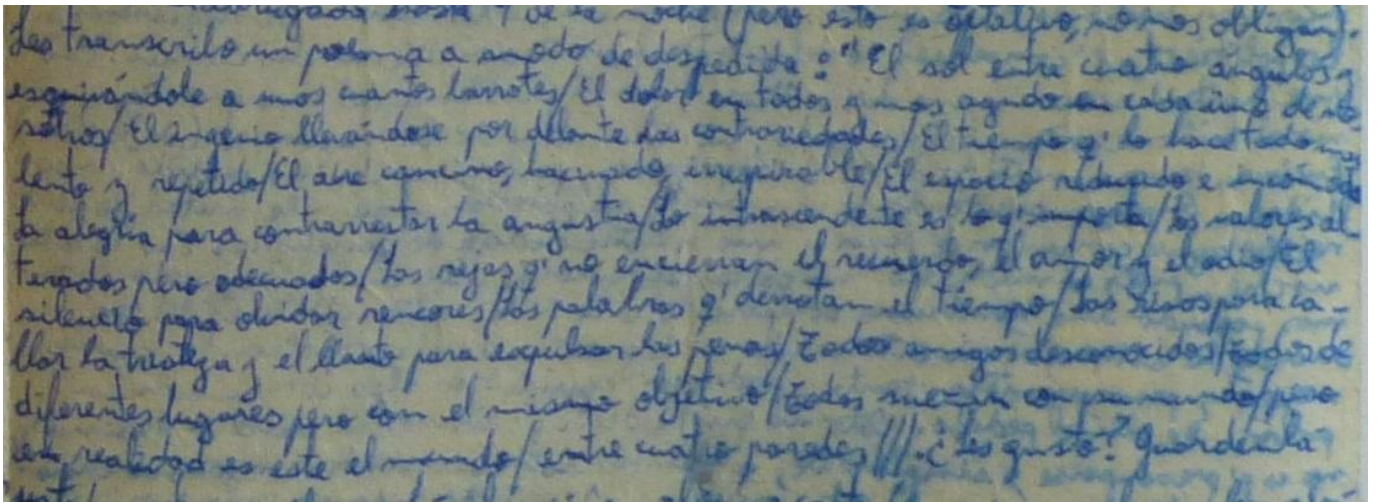 hasta 9 de la noche (pero esto es optativo, no nos obligan).
Les transcribo un poema a modo de despedida: "El sol entre cuatro angulos y
esquivándole a unos cuantos barrotes/El dolor en todos y mas agudo en cada uno de no-
sotros/El ingenio llevándose por delante las contrariedades/El tiempo q' lo hace todo mas
lento y repetido/El aire cansino, hacinado, irrespirable/El espacio reducido e incómodo
la alegria para contrarrestar la angustia/Lo intrascendente es lo q' importa/Los valores al-
terados pero adecuados/Las rejas q' no encierran el recuerdo, el amor y el odio/El
silencio para olvidar rencores/Las palabras q' derrotan el tiempo/Las risas para ca-
llar la tristeza y el llanto para expulsar las penas/Todos amigos desconocidos/Todos de
diferentes lugares pero con el mismo objetivo/Todos sueñan con su mundo/pero
en realidad es este el mundo/entre cuatro paredes///. ¿Les gustó? Guardenla